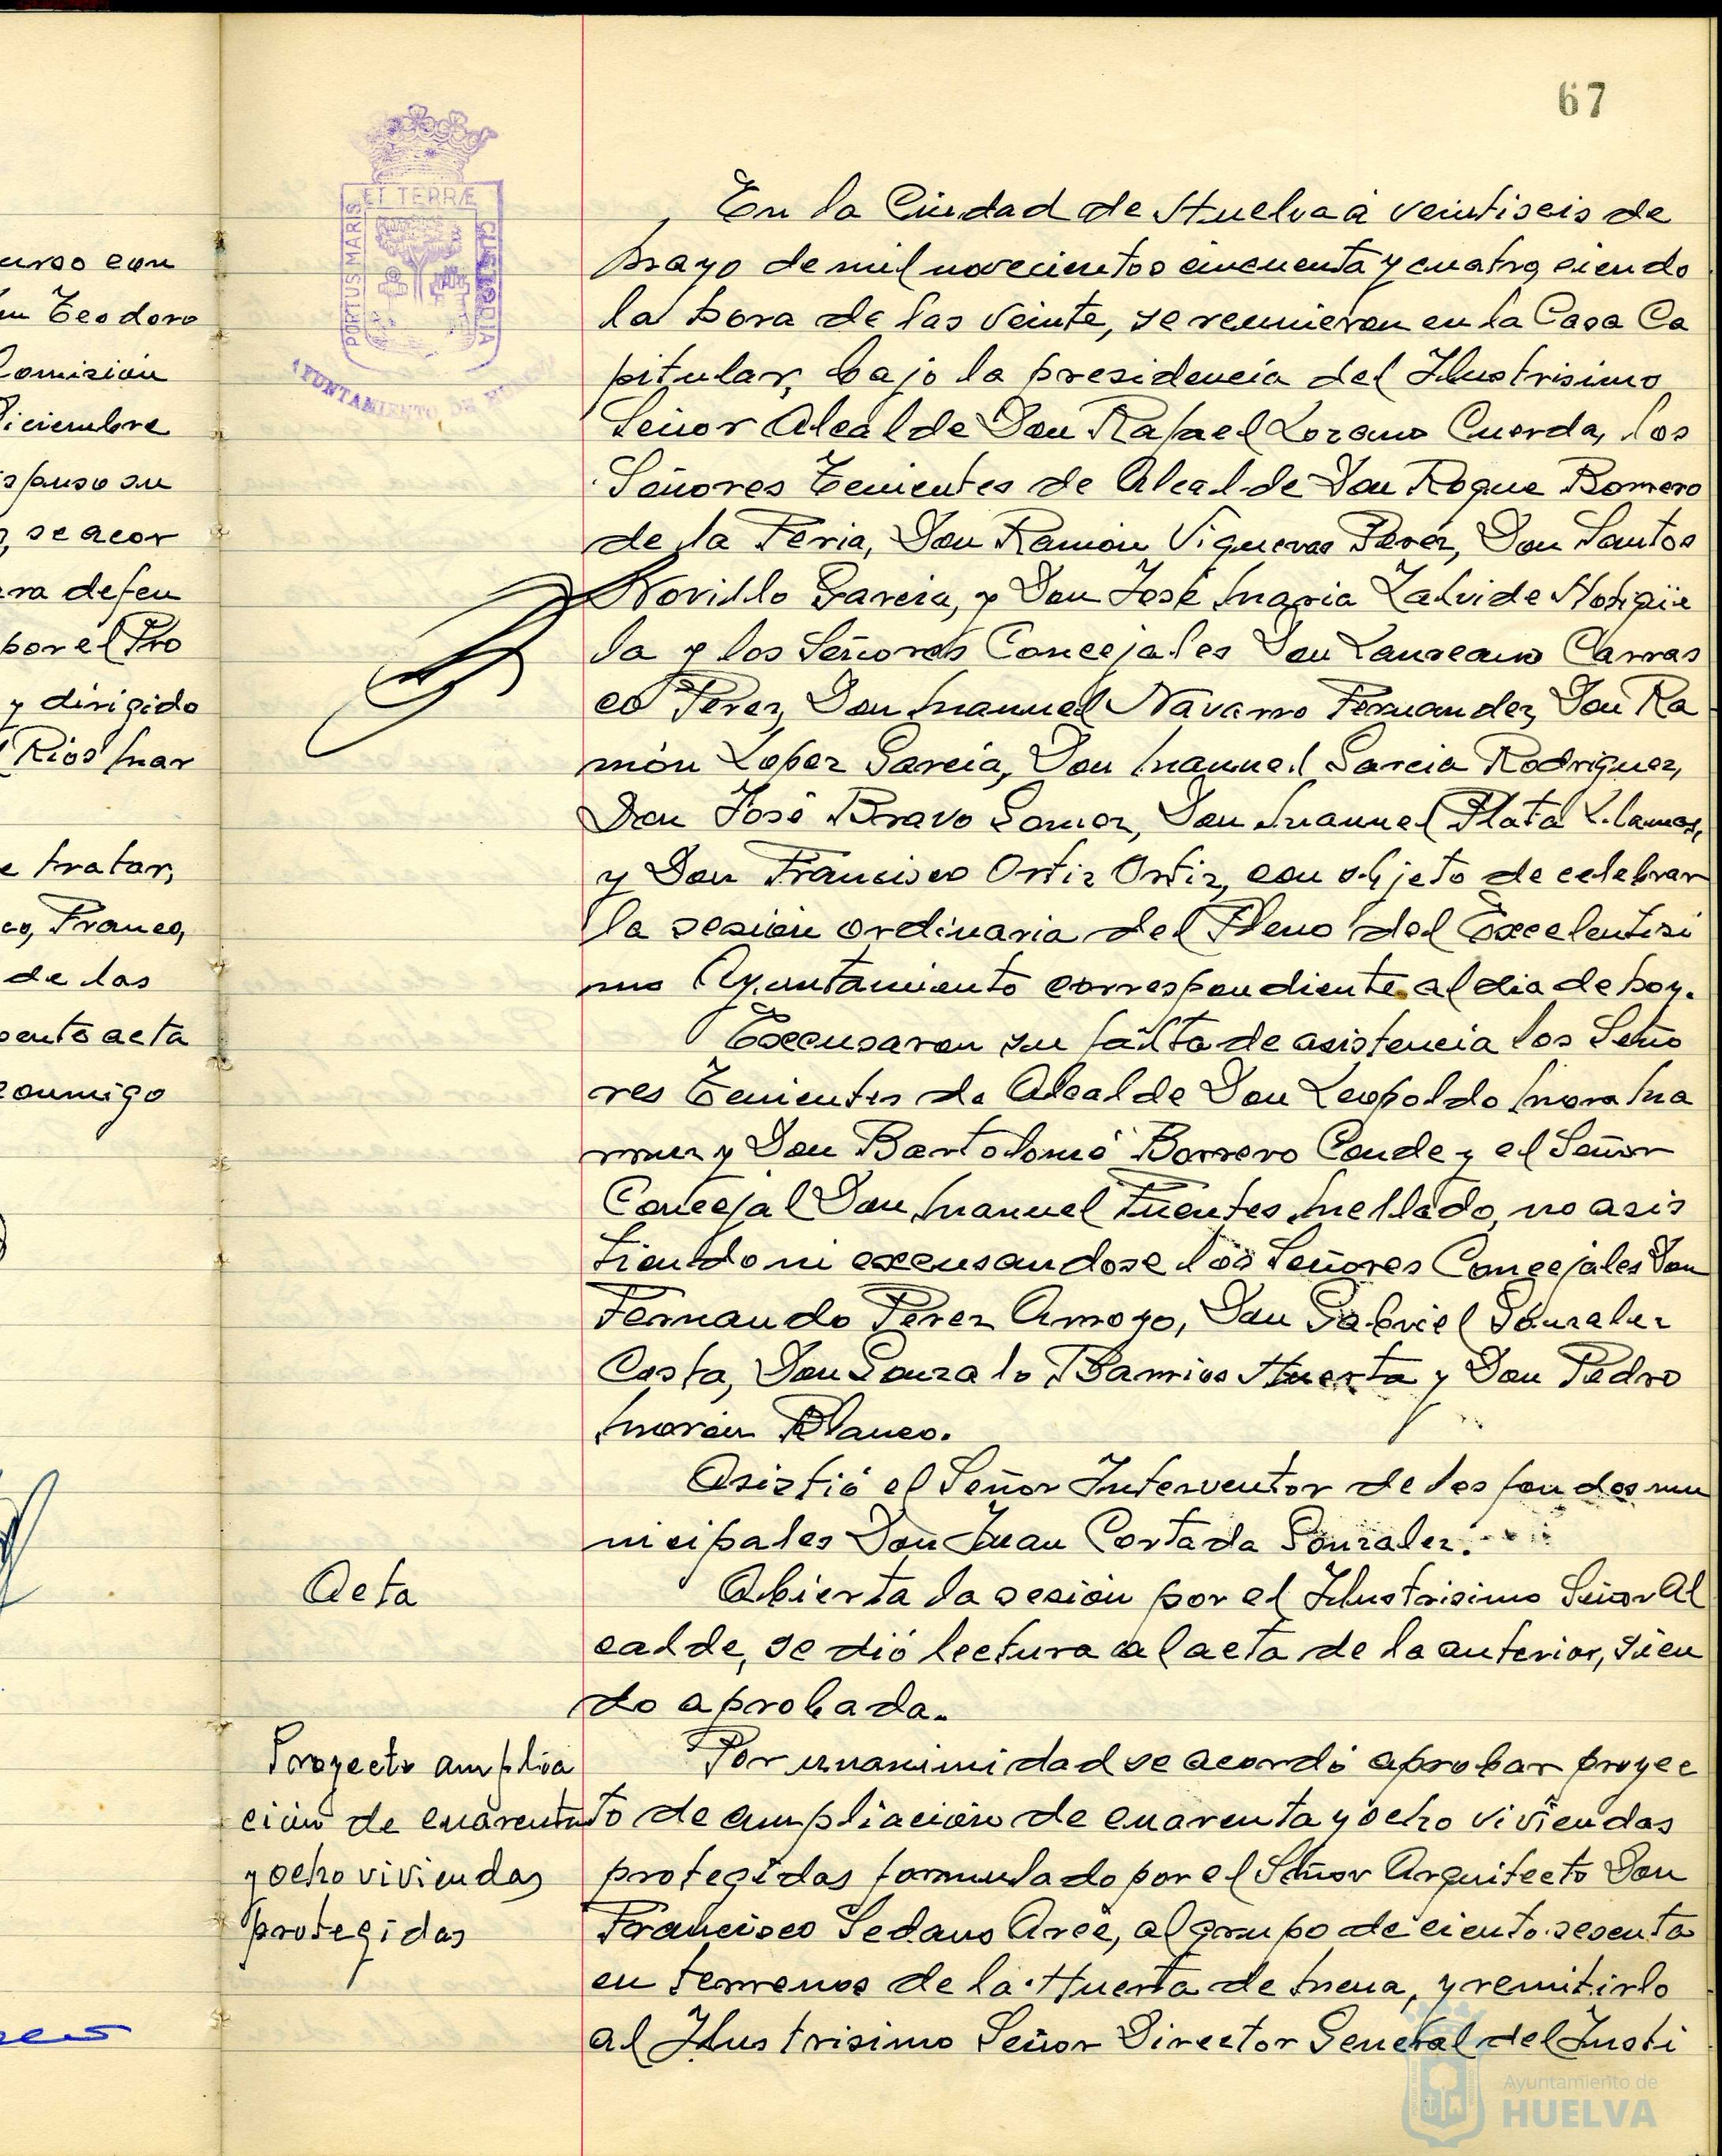 67
ET TERRÆ
PORTUS MARIS
CUSTODIA
AYUNTAMIENTO DE HUELVA
En la Ciudad de Huelva a veintiseis de
Mayo de mil novecientos cincuenta y cuatro, siendo
la hora de las veinte, se reunieron en la Casa Ca
pitular, bajo la presidencia del Ilustrisimo
Señor Alcalde Don Rafael Lozano Cuerda, los
Señores Tenientes de Alcalde Don Roque Romero
de la Feria, Don Ramón Vigueras Perez, Don Santos
Novillo Garcia, y Don José Maria Zalvide
la y los Señores Concejales Don Laureano Carras
co Perez, Don Manuel Navarro Fernandez, Don Ra
món Lopez García, Don Manuel Garcia Rodriguez,
Don José Bravo Gomez, Don Manuel Plata Llamas,
y Don Francisco Ortiz Ortiz, con objeto de celebrar
la sesión ordinaria del Pleno del Excelentisi
mo Ayuntamiento correspondiente al dia de hoy.
Excusaron su falta de asistencia los Seño
res Tenientes de Alcalde Don Leopoldo Mora Ma
y Don Bartolomé Borrero Conde y el Señor
Concejal Don Manuel Fuentes Mellado, no asis
tiendo ni excusandose los Señores Concejales Don
Fernando Perez Arroyo, Don Gabriel Gonzalez
Costa, Don Gonzalo Barrios Huerta y Don Pedro
Morón Blanco.
Asistió el Señor Interventor de los fondos mu
nicipales Don Juan Cortada Gonzalez.
Acta
Abierta la sesión por el Ilustrisimo Señor Al
calde, se dió lectura al acta de la anterior, sien
do aprobada.
Proyecto amplia
ción de cuarenta
y ocho viviendas
protegidas
Por unanimidad se acordó aprobar proyec
to de ampliación de cuarenta y ocho viviendas
protegidas formulado por el Señor Arquitecto Don
Francisco Sedano Arce, al grupo de ciento sesenta
en terrenos de la Huerta de Mena, y remitirlo
al Ilustrisimo Señor Director General del Insti
urso con
n Teodoro
omisión
iciembre
spuso su
, se acor
ra defen
por el Pro
y dirigido
Rios Mar
e tratar,
co, Franco,
de las
sente acta
conmigo
Ayuntamiento de
HUELVA